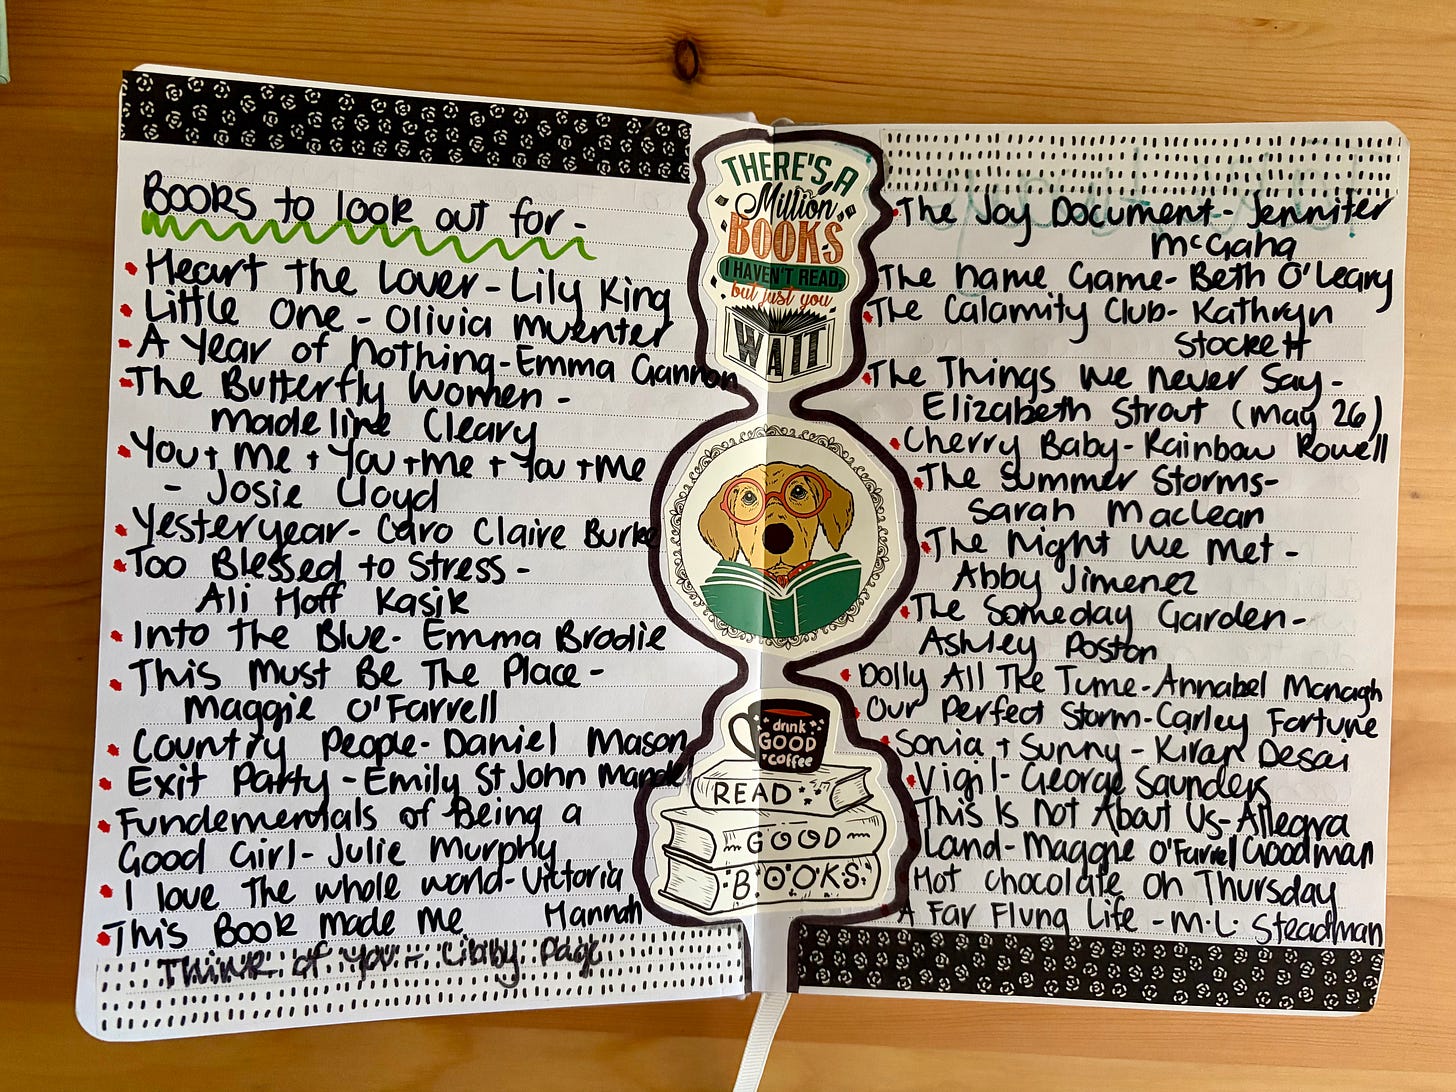 BOOKS to look out for -
Heart The Lover - Lily King
Little One - Olivia Muenter
A Year of Nothing - Emma Gannon
The Butterfly Women -
Madeline Cleary
You + Me + You + Me + You + Me
- Josie Lloyd
Yesteryear - Caro Claire Burke
Too Blessed to Stress -
Ali Hoff Kasik
Into The Blue - Emma Brodie
This Must Be The Place -
Maggie O'Farrell
Country People - Daniel Mason
Exit Party - Emily St John Mandel
Fundementals of Being a
Good Girl - Julie Murphy
I love The whole world - Victoria
Hannah
This Book Made Me
Think of You - Libby Page
THERE'S A
Million
BOOKS
I HAVEN'T READ,
but just you
WAIT
drink
GOOD
coffee
READ
GOOD
BOOKS
The Joy Document - Jennifer
McGaha
The Name Game - Beth O'Leary
The Calamity Club - Kathryn
Stockett
The Things We Never Say -
Elizabeth Strout (May 26)
Cherry Baby - Rainbow Rowell
The Summer Storms -
Sarah Maclean
The Night We Met -
Abby Jimenez
The Someday Garden -
Ashley Poston
Dolly All The Time - Annabel Monagh
Our Perfect Storm - Carley Fortune
Sonia + Sunny - Kiran Desai
Vigil - George Saunders
This Is Not About Us - Allegra
Land - Maggie O'Farrell Goodman
Hot Chocolate on Thursday
A Far Flung Life - M.L. Steadman